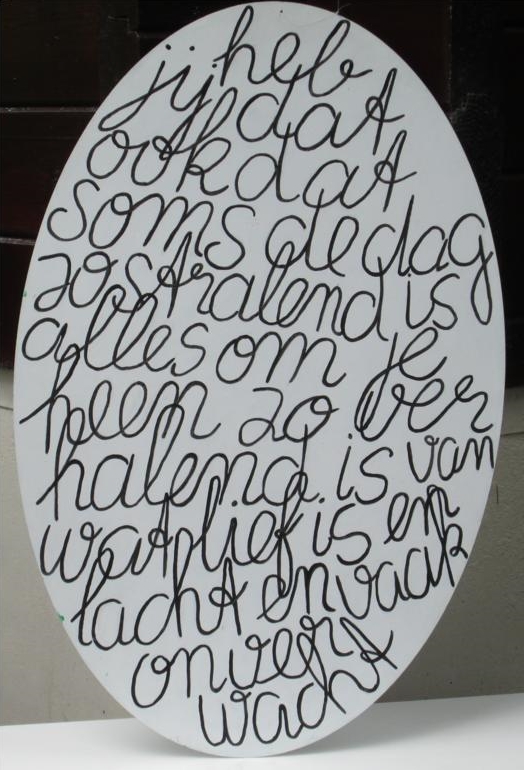 heb
jij dat
ook dat
soms de dag
zo stralend is
alles om je
heen zo ver
halend is van
wat lief is en
lacht en vaak
onver
wacht